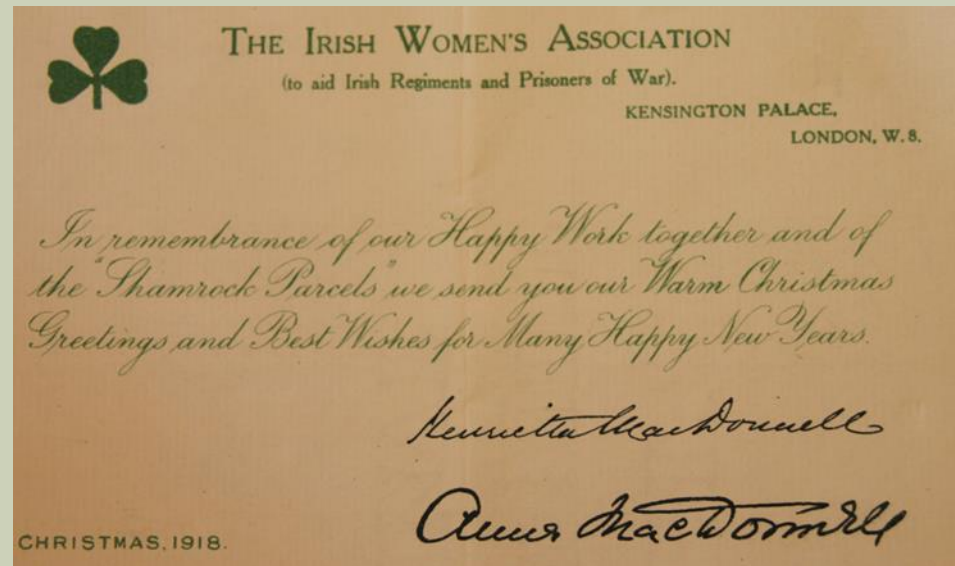 THE IRISH WOMEN'S ASSOCIATION
(to aid Irish Regiments and Prisoners of War).
KENSINGTON PALACE,
LONDON, W. 8.
In remembrance of our Happy Work together and of
the "Shamrock Parcels" we send you our Warm Christmas
Greetings and Best Wishes for Many Happy New Years.
Henrietta MacDonnell
Anne MacDonnell
CHRISTMAS, 1918.